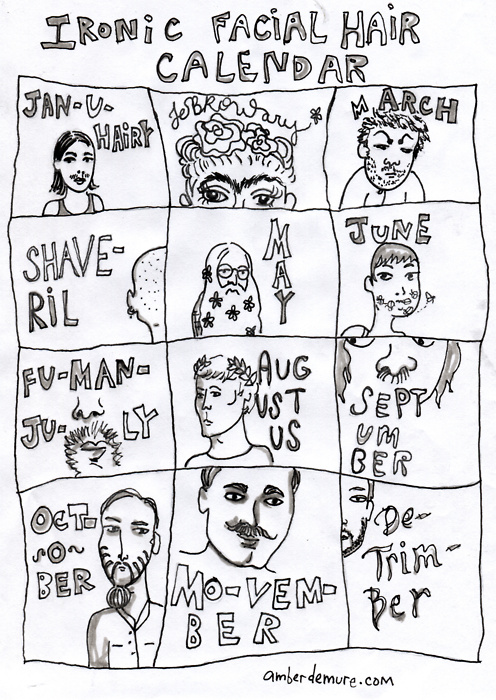 IRONIC FACIAL HAIR
CALENDAR
JAN-U-
HAIRY
FeBROWary
MARCH
SHAVE-
RIL
MAY
JUNE
FU-MAN-
JU-LY
AUG
UST
US
SEPT
UM
BER
OCT-
-O-
BER
MO-VEM-
BER
De-
Trim-
Ber
amberdemure.com